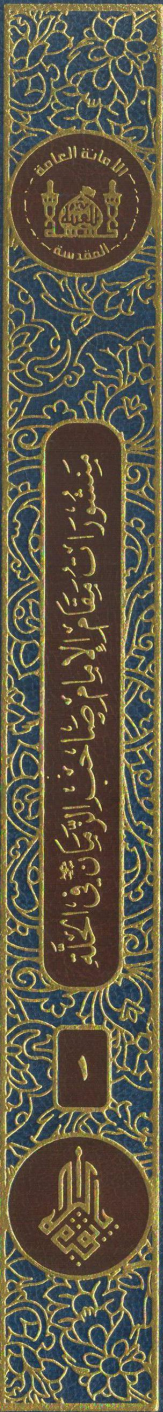 الامانة العامة
المقدسة
منشورات مقام الإمام صاحب الزمان في الحلة
١